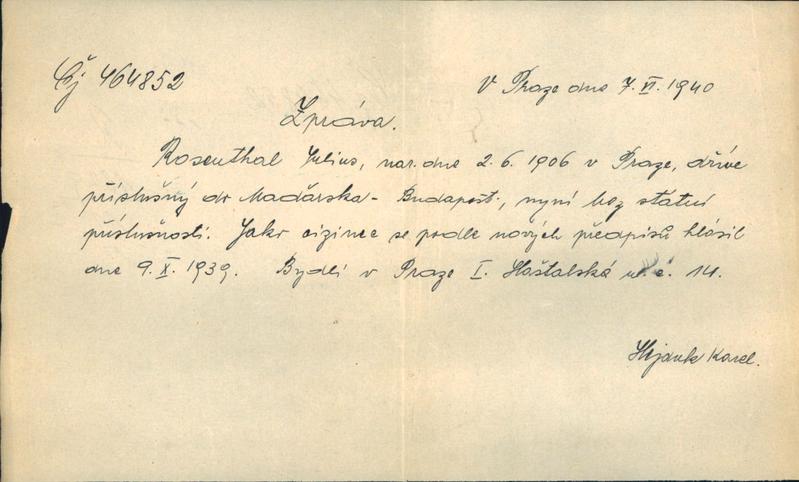 Čj 464852
V Praze dne 7. VI. 1940
Zpráva.
Rosenthal Julius, nar. dne 2. 6. 1906 v Praze, dříve
příslušný do Maďarska - Budapest, nyní bez státní
příslušnosti. Jako cizinec se podle nových předpisů hlásil
dne 9. X. 1939. Bydlí v Praze I. Haštalská č. 14.
Karel.